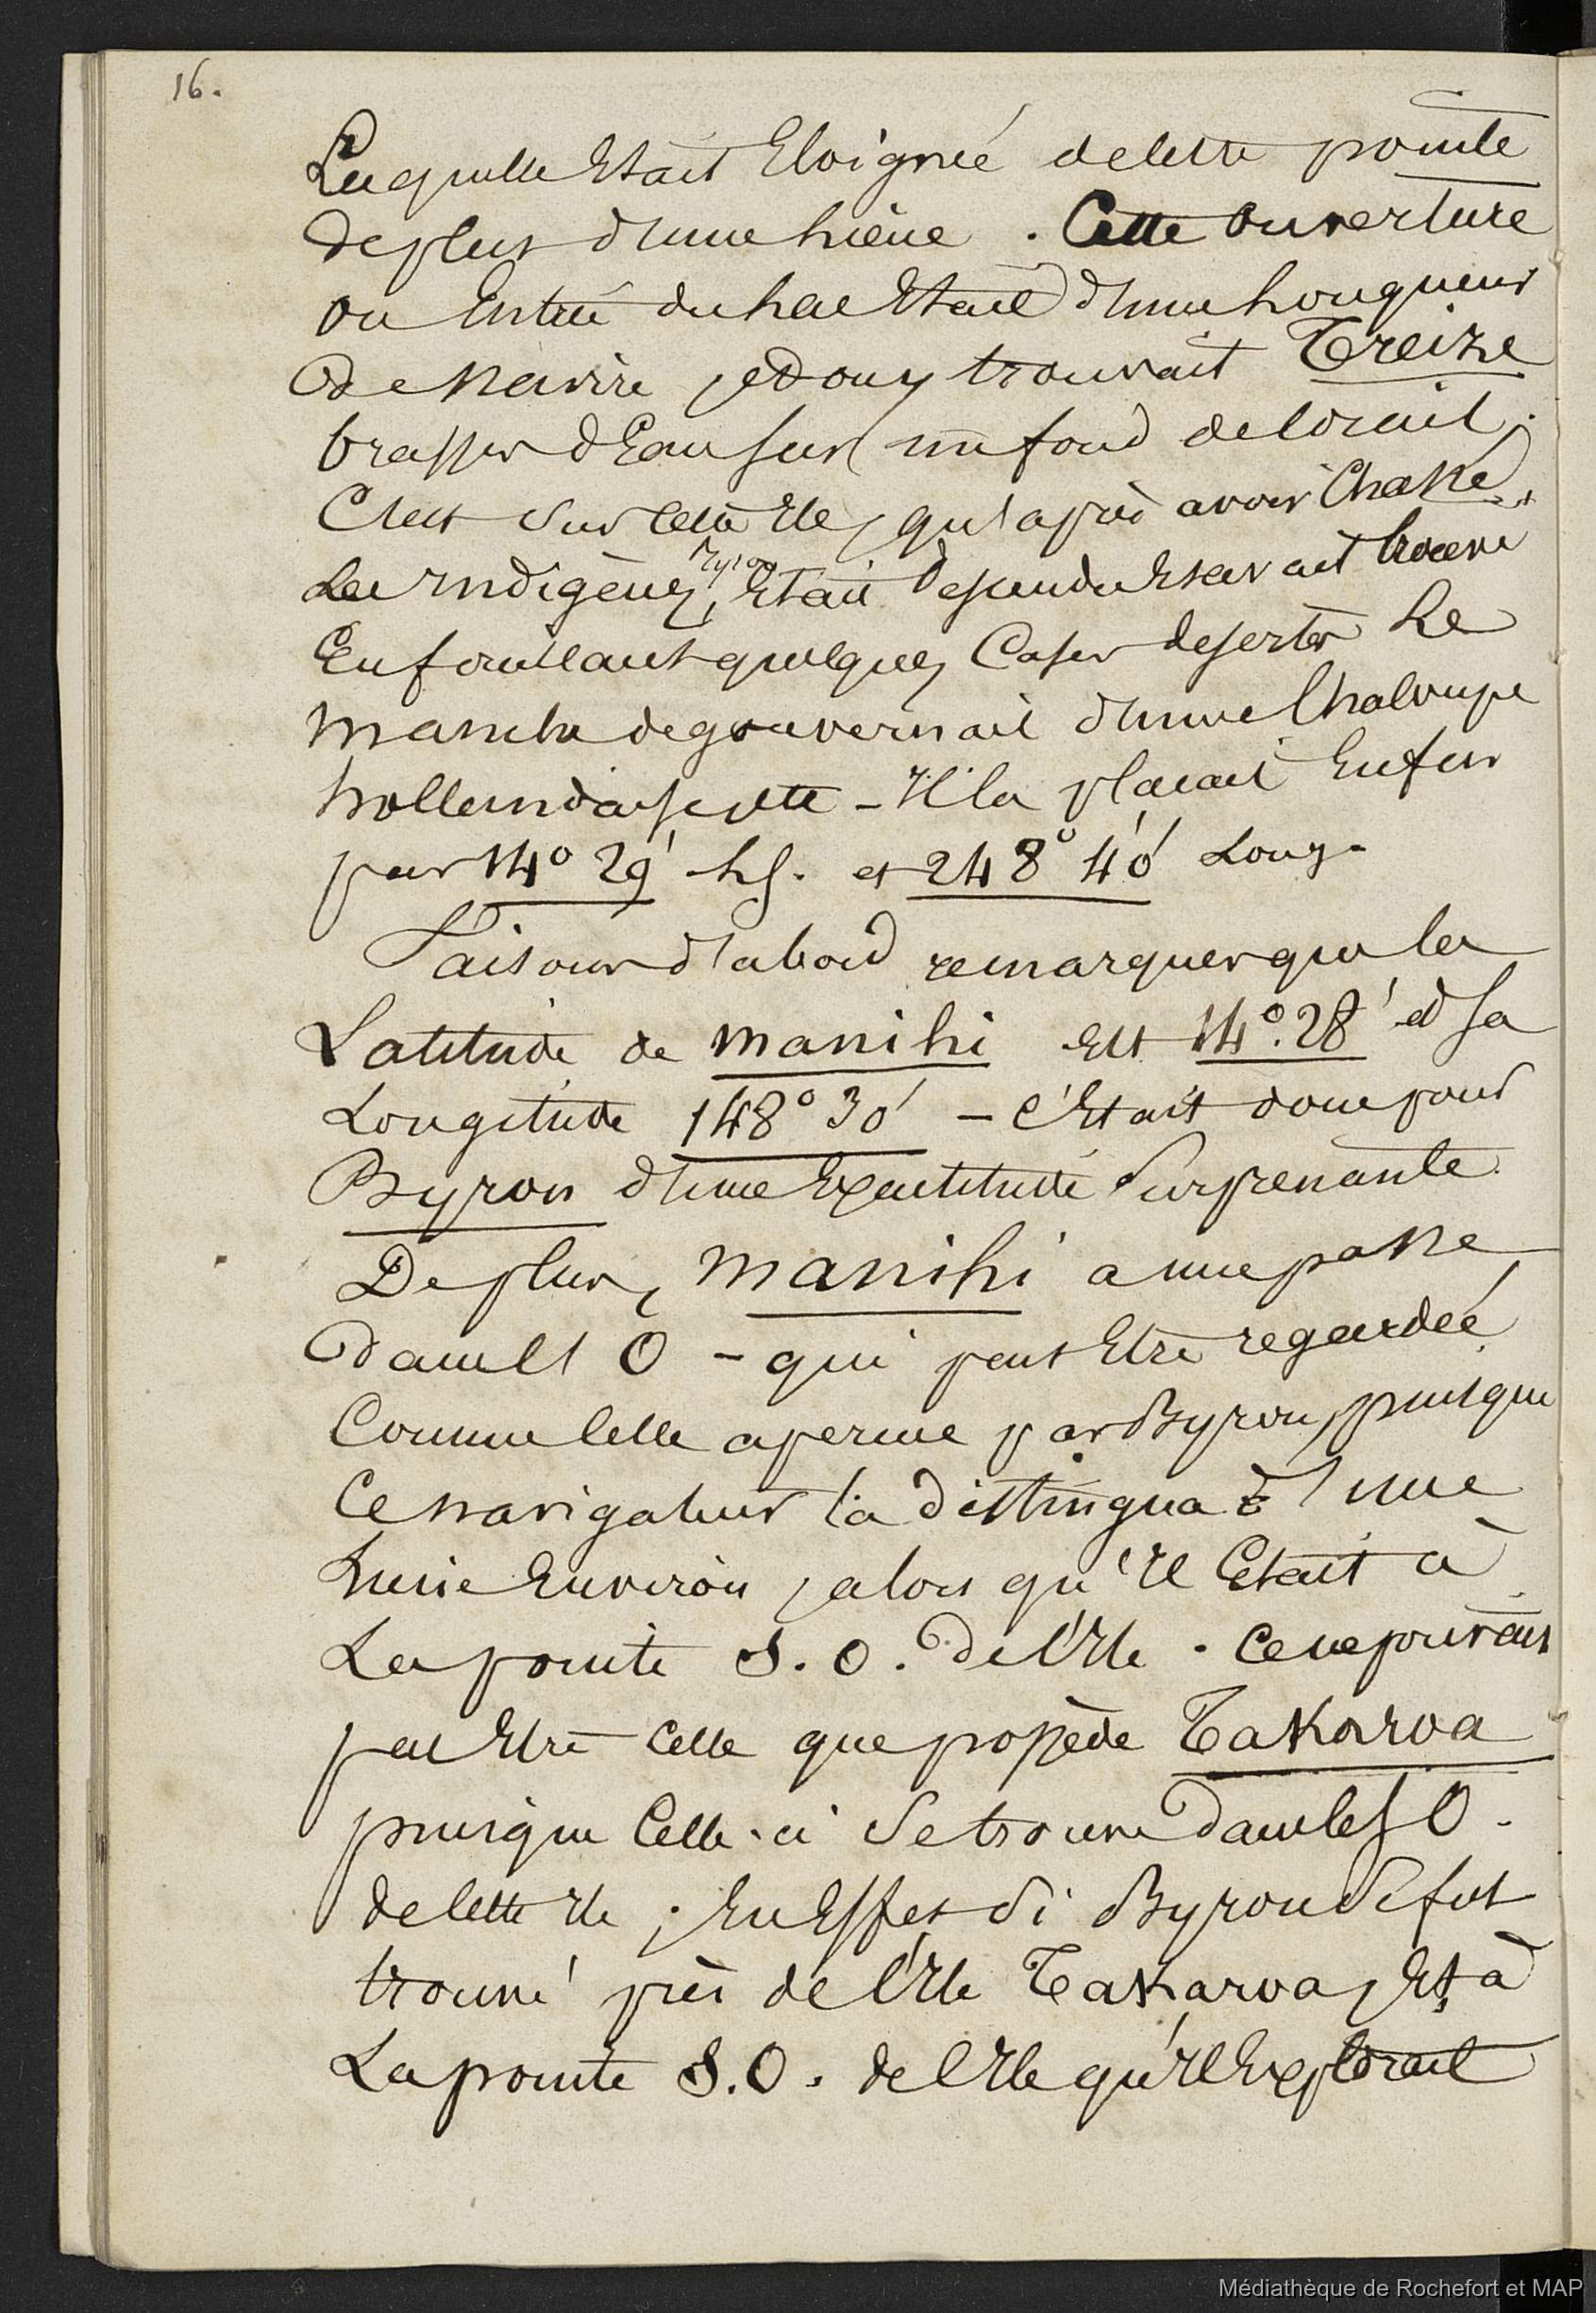 16.
Laquelle Etait Eloignée de cette pointe
de plus d'une lieue. Cette ouverture
ou Entrée du lac Etait d'une longueur
de Navire et on y trouvait Treize
brasses d'Eau sur un fond de Corail.
C'est sur cette Ile, qu'après avoir Chassé
Les Indigènes, Byron Etait descendu et avait trouvé
En fouillant quelques Cases desertes Le
manche de gouvernail d'une Chaloupe
hollandaise - Il la placait Enfin
par 14° 29' Ls. et 248° 40' Long.
Faisons d'abord remarquer que la
Latitude de Manihi Est 14°.28' et sa
Longitude 148° 30' - C'Etait donc pour
Byron d'une Exactitude Surprenante.
De plus, Manihi a une passe
dans l'O - qui peut Etre regardée
Comme Celle aperçue par Byron, puisque
Ce navigateur la distingua à 1 une
Lieue Environ, alors qu'Il Etait à
La pointe S.O. de l'Ile. Ce ne pouvait
pas Etre Celle que possède Takaroa
puisque Celle-ci Se trouve dans le S O.
de cette Ile ; En Effet Si Byron Se fut
trouvé près de l'Ile Takaroa, Et à
La pointe S.O. de l'Ile qu'Il Explorait
Médiathèque de Rochefort et MAP